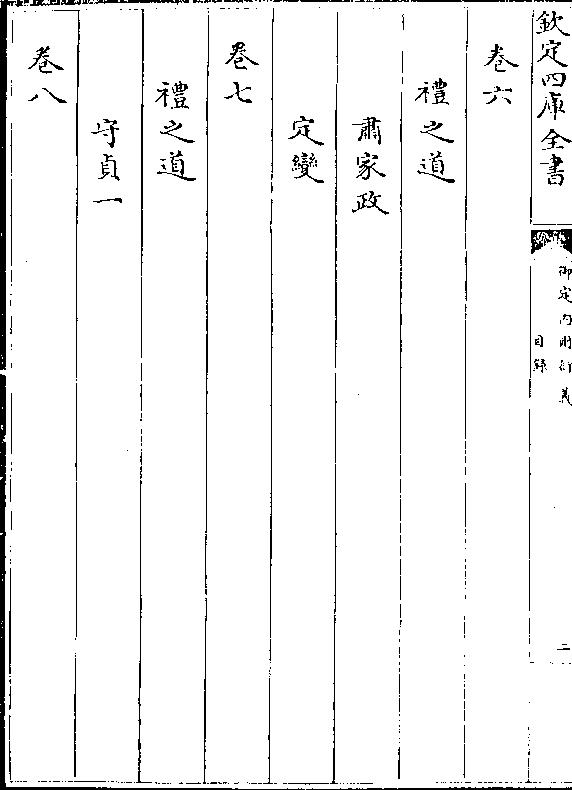 欽定四庫全書
御定內則衍義
目録
二
卷六
禮之道
肅家政
定變
卷七
禮之道
守貞一
卷八